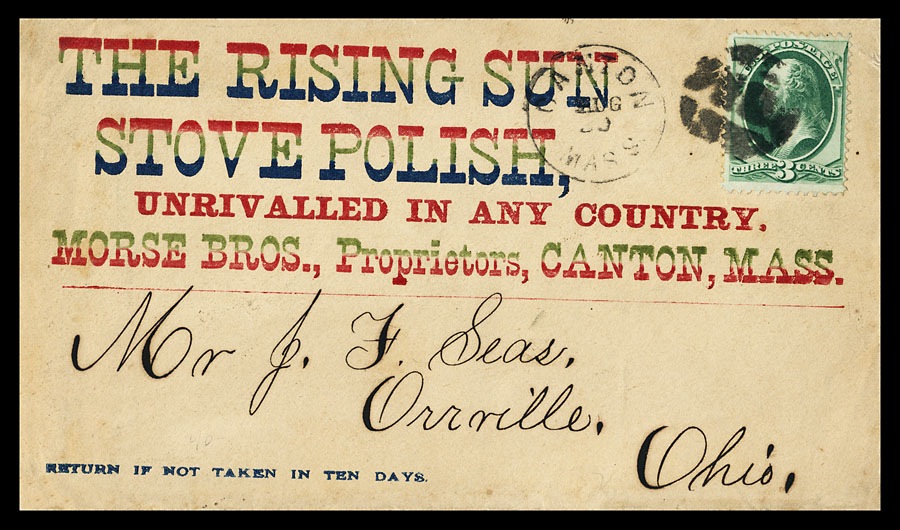 THE RISING SUN
STOVE POLISH,
UNRIVALLED IN ANY COUNTRY.
MORSE BROS., Proprietors, CANTON, MASS.
CANTON
AUG
MASS.
POSTAGE
THREE 3 CENTS
Mr J. F. Seas,
Orrville,
Ohio,
RETURN IF NOT TAKEN IN TEN DAYS.